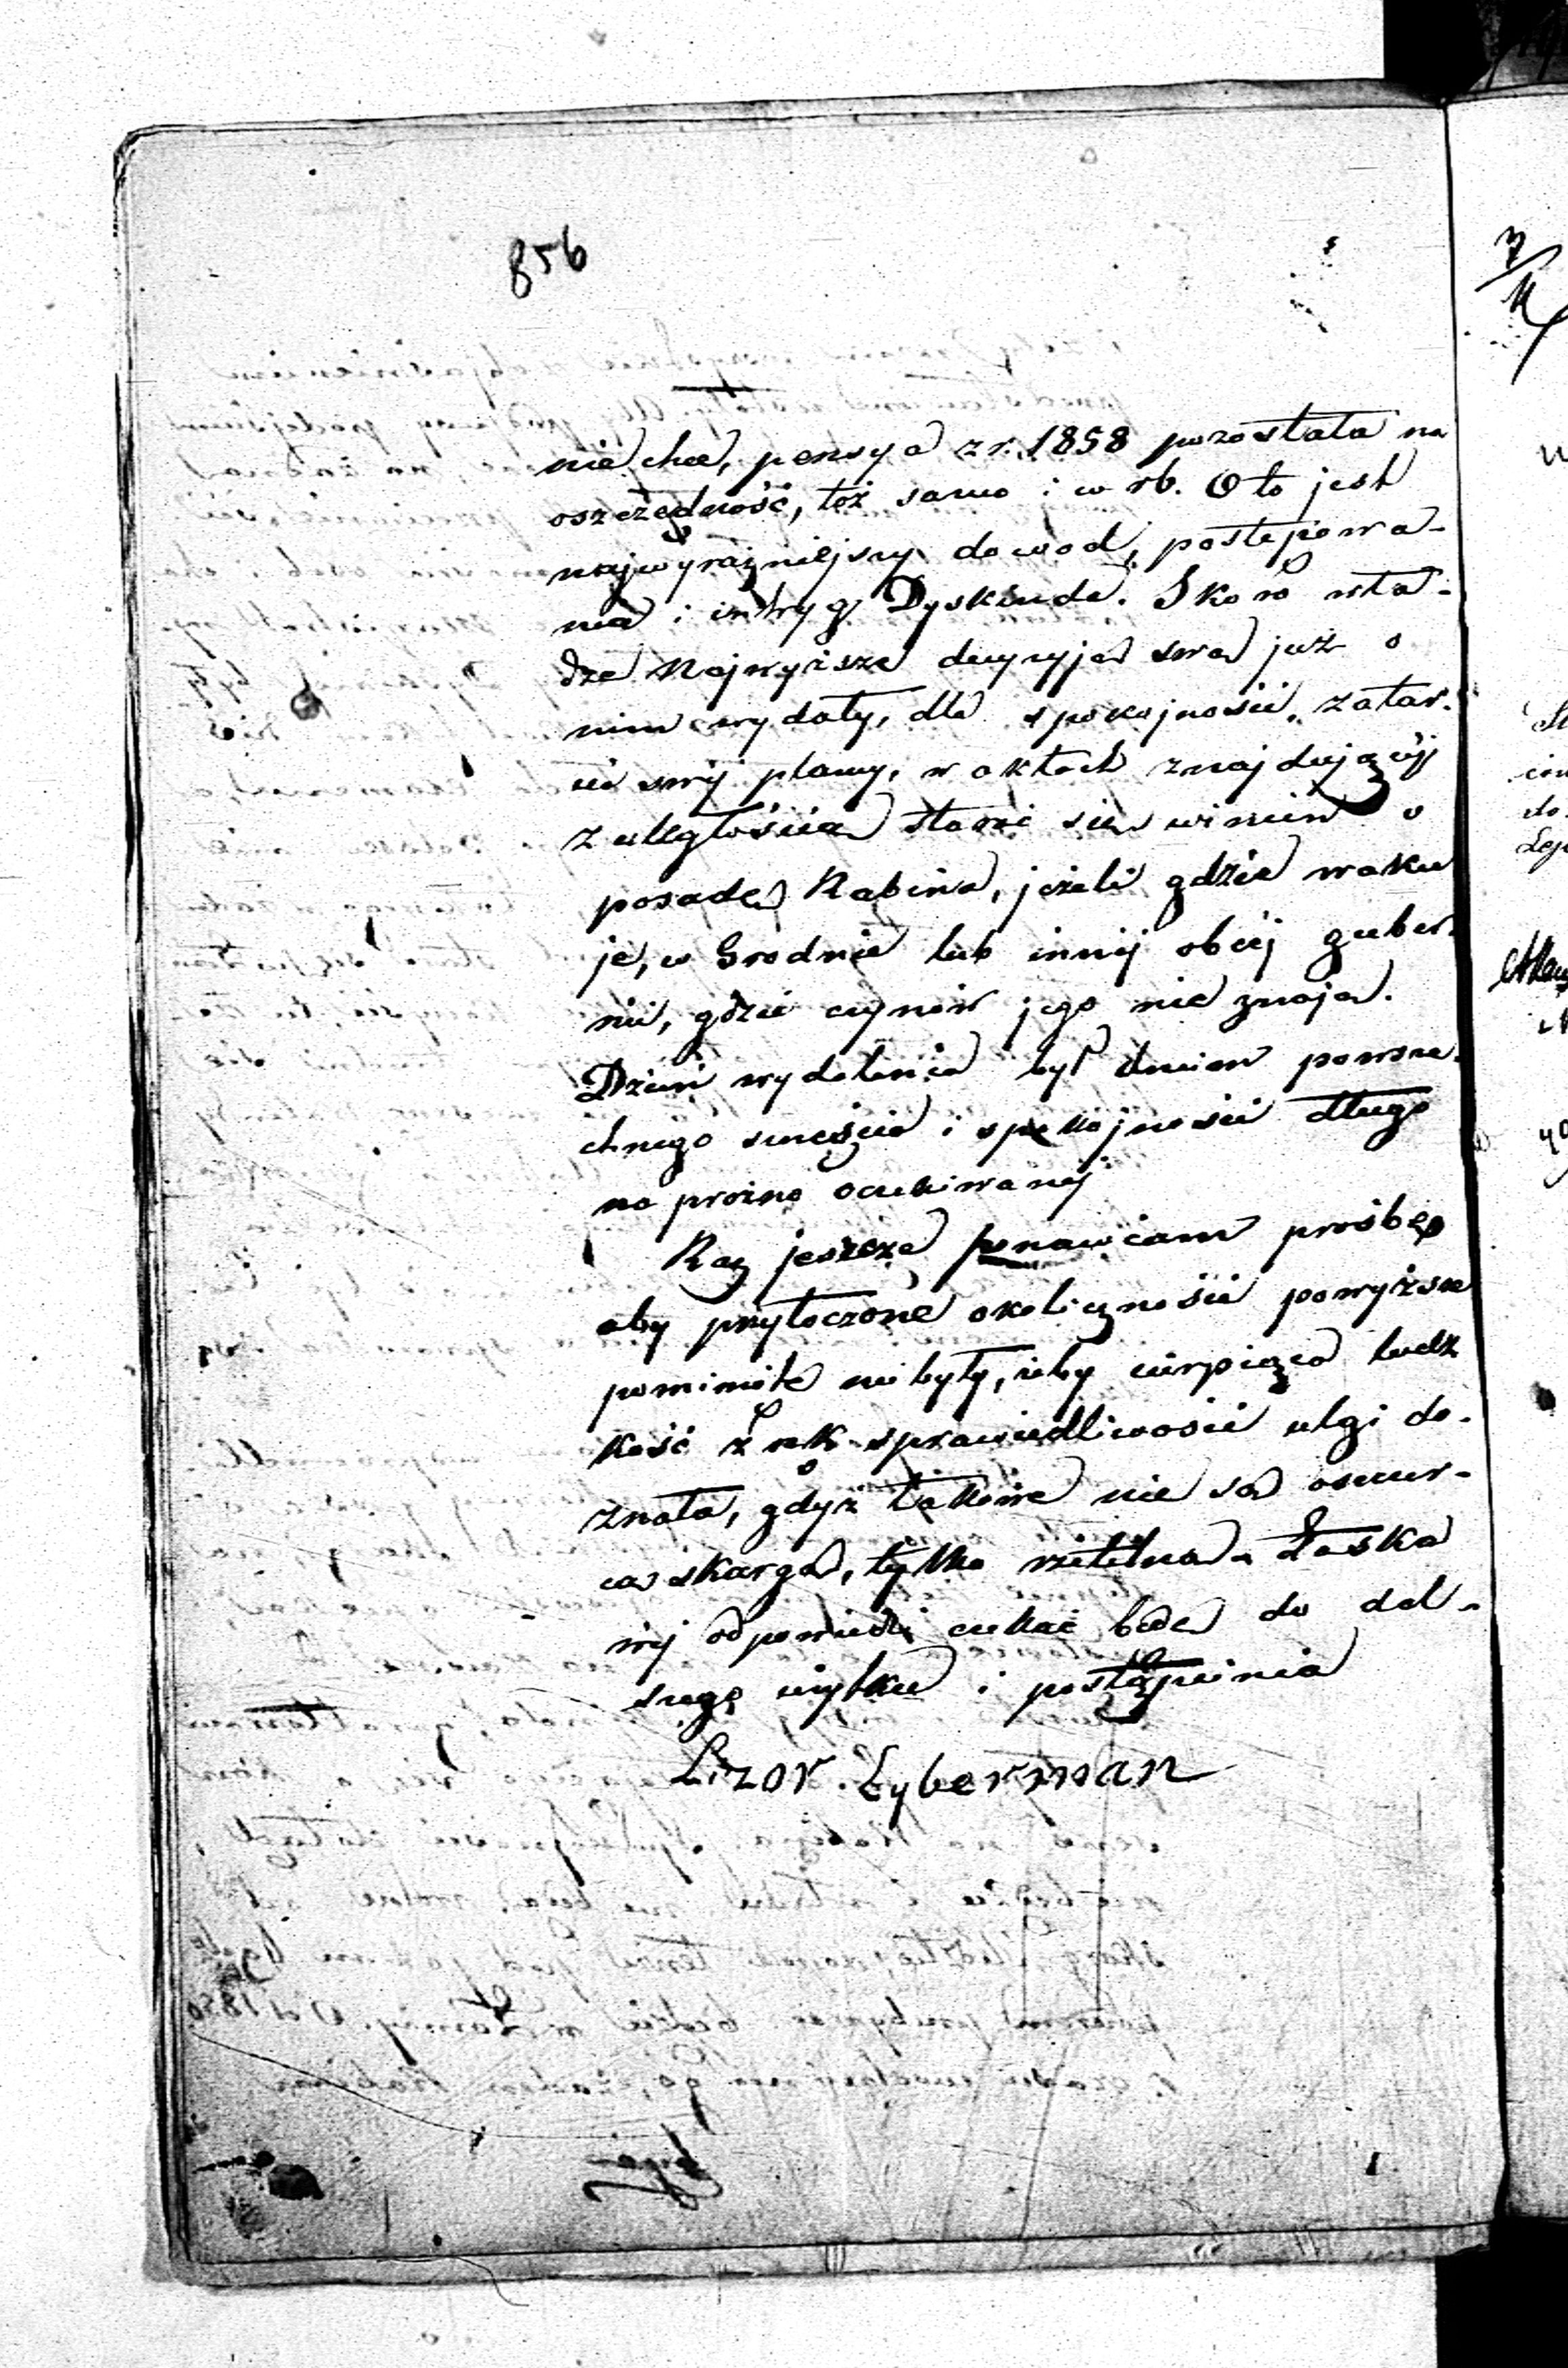 856
nie chce, pensya z r. 1858 pozostała na
oszczędność, toż samo i w rb. Oto jest
najwyraźniejszy dowod, postępowa-
nia i intryg Dyskinda. Skoro wła-
dze Najwyższe decyzją swą już o
nim wydały, dla spokojności, zatar-
cia swej plamy, w aktach znajdującéj
z uległością starać się winien o
posadę Rabina, jeżeli gdzie waku
je, w Grodnie lub innéj obcéj guber-
nii, gdzie czynów jego nie znają.
Dzień wydalenia był dniem powsze-
chnego szczęścia i spokojności długo
na próżno oczekiwanéj
Raz jeszcze ponawiam prośbę
aby przytoczone okoliczności powyższe
pominięte nie były, żeby cierpiąca ludz
kość z rąk sprawiedliwości ulgi do-
znała, gdyż takowe nie są oszczer-
czą skargą, tylko rzetelną. Łaska
wéj odpowiedzi czekać będę do dal-
szego użytku i postąpienia
Lizor Lyberman